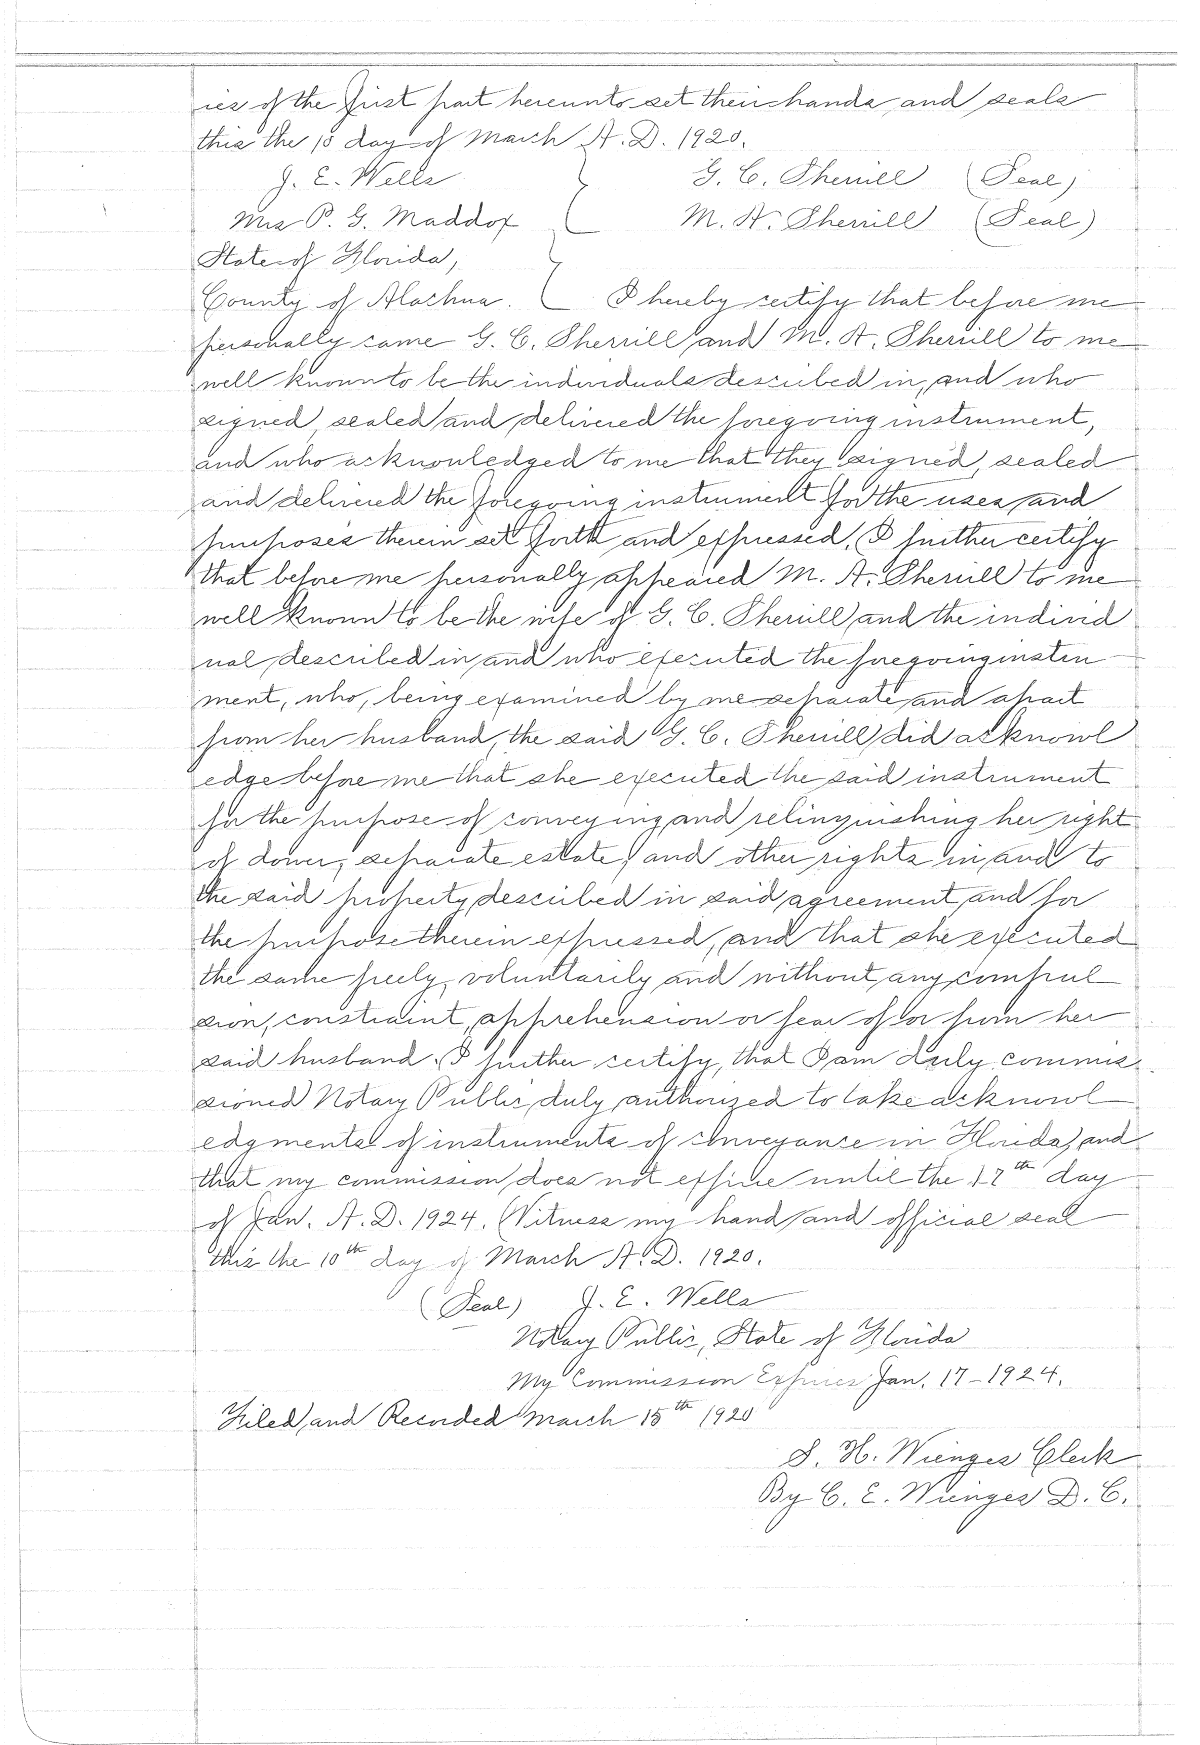 ies of the first part hereunto set their hands and seals
this the 10 day of March A.D. 1920.
J. E. Wells G. C. Sherrill (Seal)
Mrs P. G. Maddox M. A. Sherrill (Seal)
State of Florida,
County of Alachua. I hereby certify that before me
personally came G. C. Sherrill and M. A. Sherrill to me
well known to be the individuals described in, and who
signed, sealed and delivered the foregoing instrument,
and who acknowledged to me that they signed, sealed
and delivered the foregoing instrument for the uses and
purposes therein set forth and expressed. I further certify
that before me personally appeared M. A. Sherrill to me
well known to be the wife of G. C. Sherrill and the individ
ual described in and who executed the foregoing instru
ment, who, being examined by me separate and apart
from her husband, the said G. C. Sherrill did acknowl
edge before me that she executed the said instrument
for the purpose of conveying and relinquishing her right
of dower, separate estate, and other rights in and to
the said property described in said agreement and for
the purpose therein expressed, and that she executed
the same freely, voluntarily and without any compul
sion, constraint, apprehension or fear of or from her
said husband. I further certify, that I am duly commis-
sioned Notary Public, duly authorized to take acknowl
edgmental of instruments of conveyance in Florida, and
that my commission does not expire until the 17th day
of Jan. A.D. 1924. Witness my hand and official seal
this the 10th day of March A.D. 1920.
(Seal) J. E. Wells
Notary Public, State of Florida
My Commission Expires Jan. 17-1924.
Filed and Recorded March 15th 1920
S. H. Wienges Clerk
By C. E. Wienges D. C.